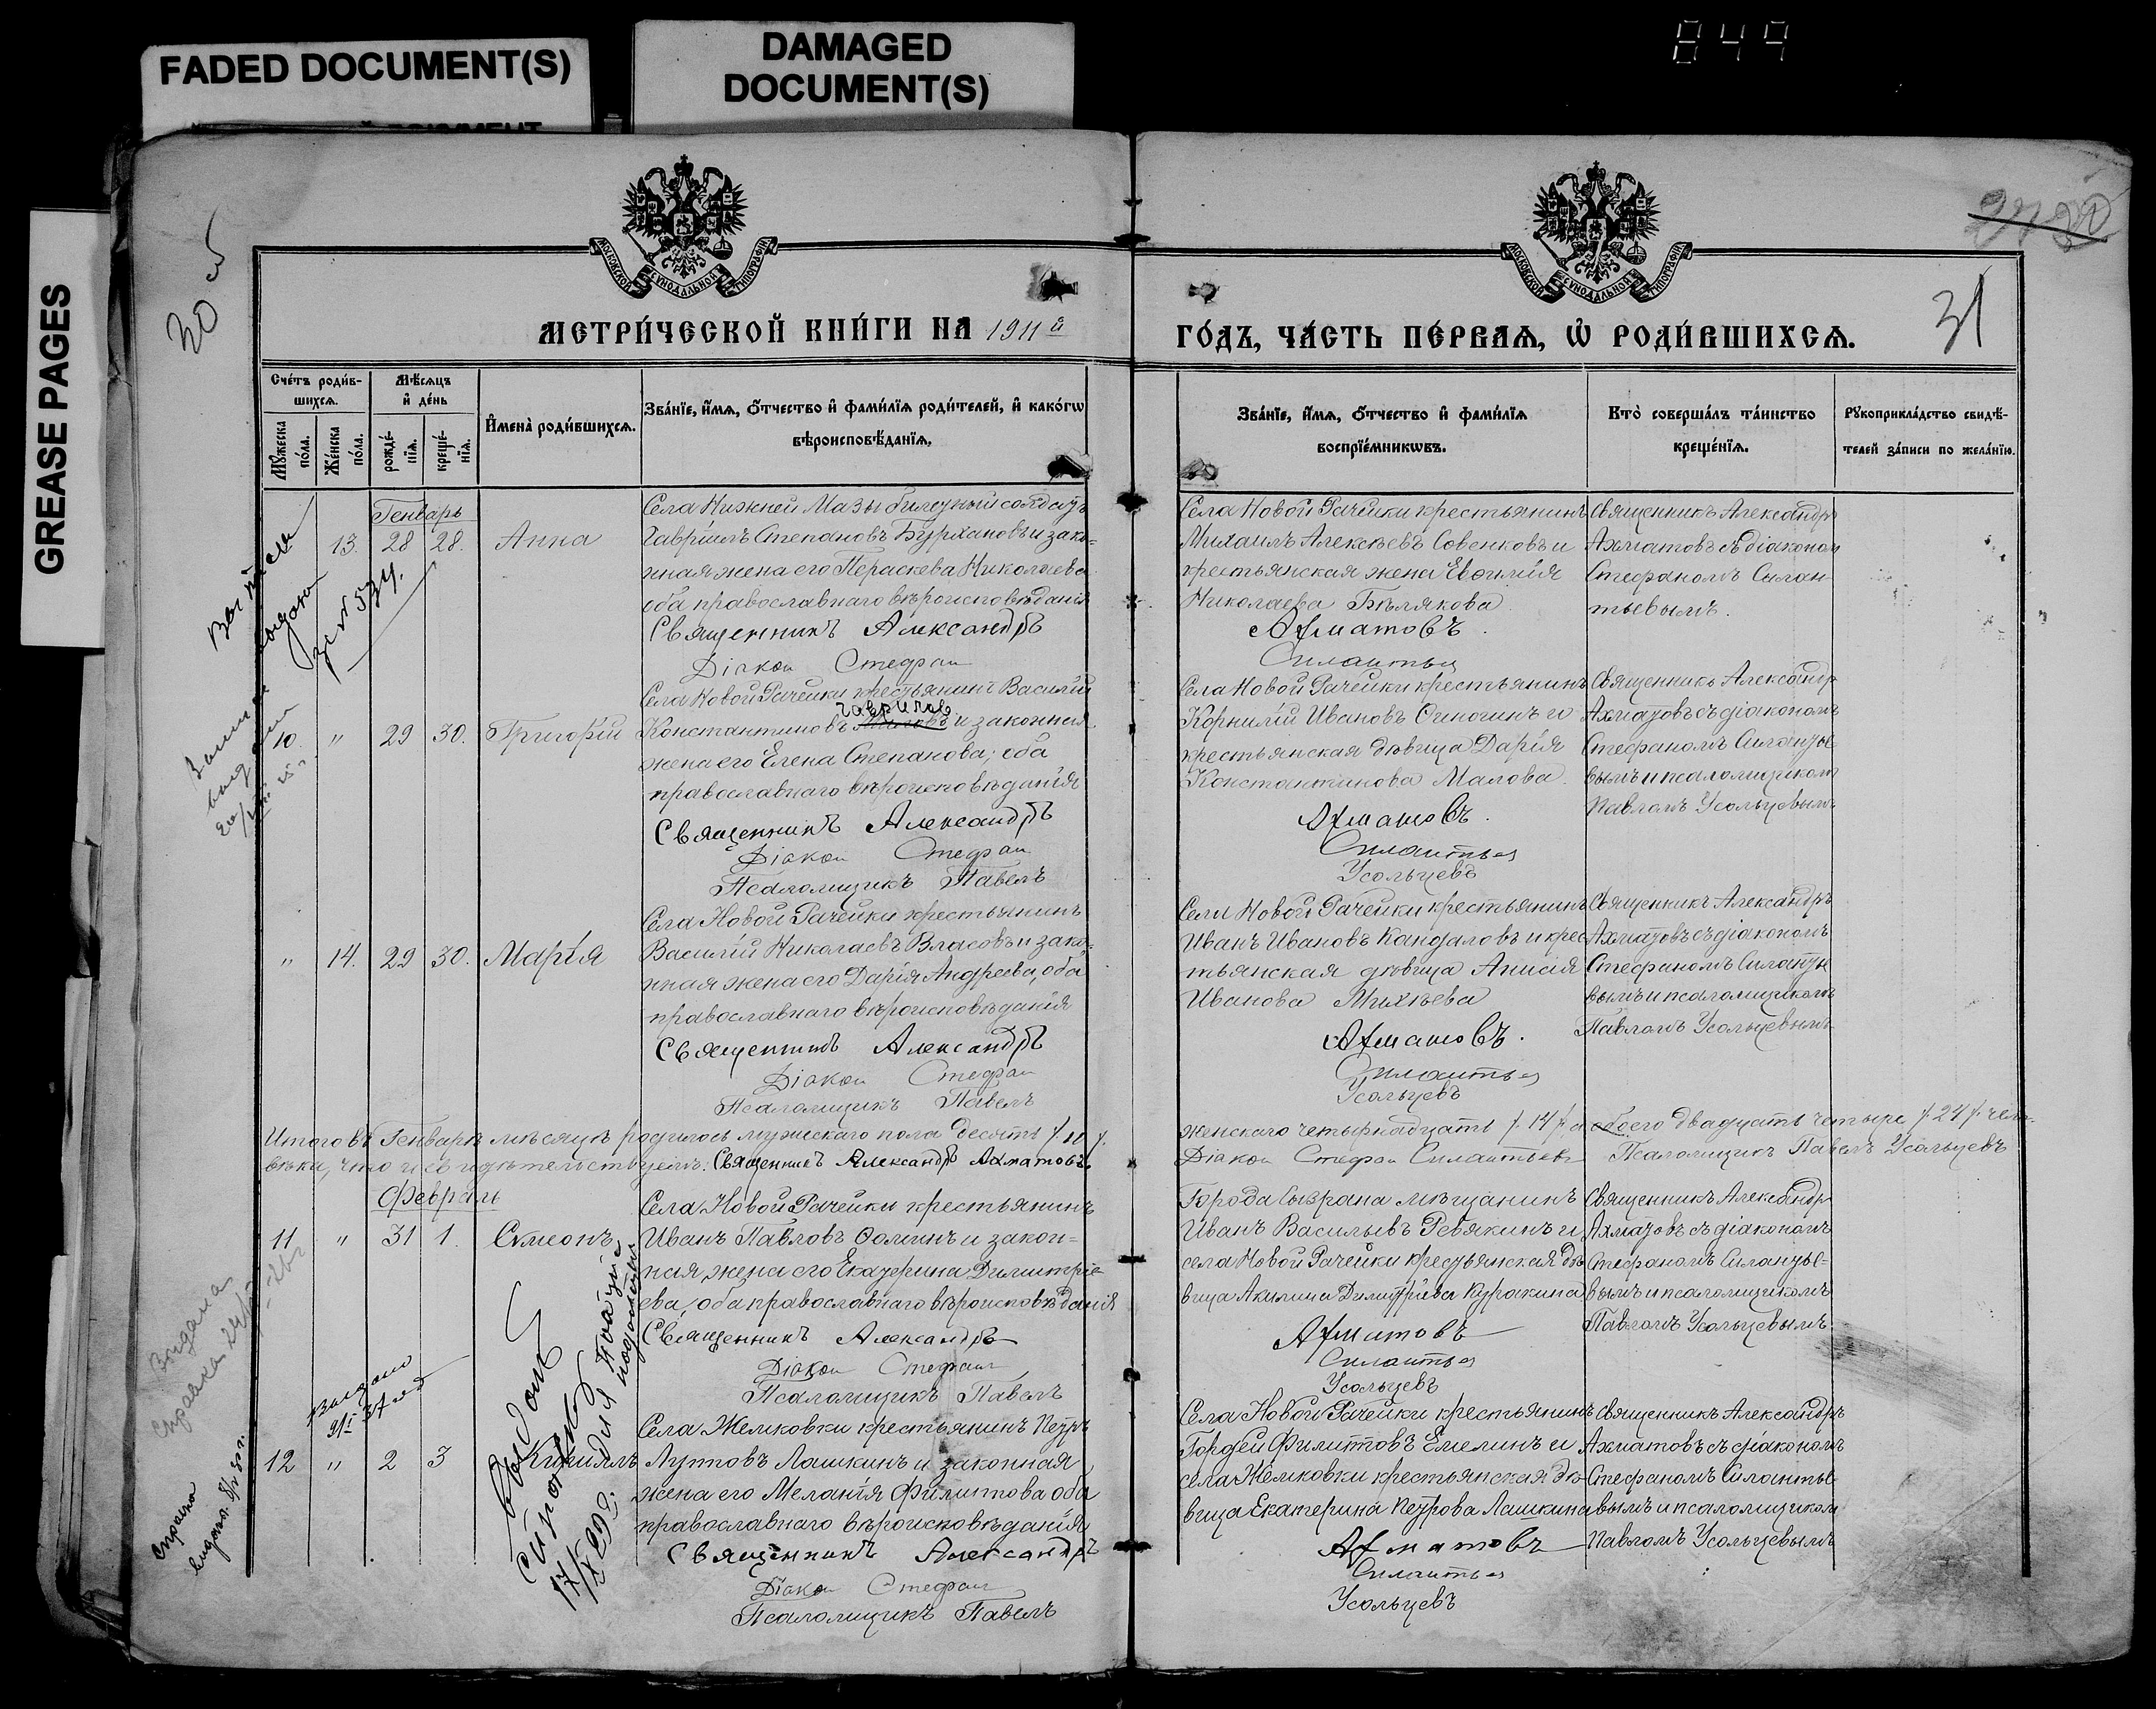 FADED DOCUMENT(S)
DAMAGED
DOCUMENT(S)
849
GREASE PAGES
30 об
31
МОСКОВСКОЙ СѴНОДАЛЬНОЙ ТИПОГРАФІИ
МОСКОВСКОЙ СѴНОДАЛЬНОЙ ТИПОГРАФІИ
МЕТРИ́ЧЕСКОЙ КНИ́ГИ НА 1911 й
ГО́ДЪ, ЧА́СТЬ ПЕ́РВАѦ, Ѡ РОДИ́ВШИХСѦ.
Сче́тъ роди́в-
шихсѧ.
Мꙋ́жеска по́ла.
Же́нска по́ла.
Мѣ́сѧцъ
и҆ де́нь
рожде́-
нїѧ.
креще́-
нїѧ.
И҆мена̀ роди́вшихсѧ.
Зва́нїе, и҆́мѧ, ѻ҆́тчество и҆ фами́лїѧ роди́телей, и҆ како́гѡ
вѣроисповѣ́данїѧ.
Зва́нїе, и҆́мѧ, ѻ҆́тчество и҆ фами́лїѧ
воспрїе́мникѡвъ.
Кто̀ соверша́лъ та́инство
креще́нїѧ.
Рꙋкоприкла́дство свидѣ́-
телей за́писи по жела́нїю.
Генварь
13. 28 28. Анна
Села Нижней Мазы билетный солдатъ
Гавріилъ Степановъ Бурхановъ и зако-
нная жена его Параскева Николаева
оба православнаго вѣроисповѣданія
Священникъ Александръ
Діакон Стефан
Села Новой Рачейки крестьянинъ
Михаилъ Алексѣевъ Совенковъ и
крестьянская жена Евѳимія
Николаева Бѣлякова
Ахматовъ.
Силантьев
Священникъ Александръ
Ахматовъ съ діакономъ
Стефаномъ Силан-
тьевымъ.
10. " 29 30. Григорій
Села Новой Рачейки крестьянинъ Василій
Гаврилов
Константиновъ и законная
жена его Елена Степанова, оба
православнаго вѣроисповѣданія
Священникъ Александръ
Діакон Стефан
Псаломщикъ Павелъ
Села Новой Рачейки крестьянинъ
Корнилій Ивановъ и
крестьянская дѣвица Дарія
Константинова Малова.
Ахматовъ.
Силантьев
Усольцевъ
Священникъ Александръ
Ахматовъ съ діакономъ
Стефаномъ Силантье-
вымъ и псаломщикомъ
Павломъ Усольцевымъ
" 14. 29 30. Марія
Села Новой Рачейки крестьянинъ
Василій Николаевъ Власовъ и зако-
нная жена его Дарія Андреева, оба
православнаго вѣроисповѣданія
Священникъ Александръ
Діакон Стефан
Псаломщикъ Павелъ
Села Новой Рачейки крестьянинъ
Иванъ Ивановъ Кандаловъ и крес-
тьянская дѣвица Анисія
Иванова Михѣева
Ахматовъ.
Силантьев
Усольцевъ
Священникъ Александръ
Ахматовъ съ діакономъ
Стефаномъ Силантье
вымъ и псаломщикомъ
Павломъ Усольцевымъ
Итого въ Генварѣ мѣсяцѣ родилось мужескаго пола десять /.10/.
женскаго четырнадцать /.14/. а обоего двадцать четыре /.24/. чело-
вѣка, что и свидѣтельствуемъ: Священникъ Александръ Ахматовъ.
Діакон Стефан Силантьевъ Псаломщикъ Павелъ Усольцевъ
Февраль
11 " 31 1. Симеонъ
Села Новой Рачейки крестьянинъ
Иванъ Павловъ Ѳоминъ и закон-
ная жена его Екатерина Димитріе-
ева, оба православнаго вѣроисповѣданія
Священникъ Александръ
Діакон Стефан
Псаломщикъ Павелъ
Города Сызрана мѣщанинъ
Иванъ Васильевъ Ребякинъ и
села Новой Рачейки крестьянская дѣ-
вица Акилина Димитріева Куракина
Ахматовъ
Силантьев
Усольцевъ
Священникъ Александръ
Ахматовъ съ діакономъ
Стефаномъ Силантье-
вымъ и псаломщикомъ
Павломъ Усольцевымъ
12 " 2 3 Кириллъ
Села Жемковки крестьянинъ Петръ
Лупповъ Лашкинъ и законная
жена его Меланія Филиппова оба
православнаго вѣроисповѣданія
Священникъ Александръ
Діакон Стефан
Псаломщикъ Павелъ
Села Новой Рачейки крестьянинъ
Гордей Филипповъ Емелинъ и
села Жемковки крестьянская дѣ-
вица Екатерина Петрова Лашкина
Ахматовъ
Силантьев
Усольцевъ
Священникъ Александръ
Ахматовъ съ діакономъ
Стефаномъ Силантье-
вымъ и псаломщикомъ
Павломъ Усольцевымъ
Выпись
выдана
за № 534.
выдана
Выдана
справка
выдано
Справка
выдана